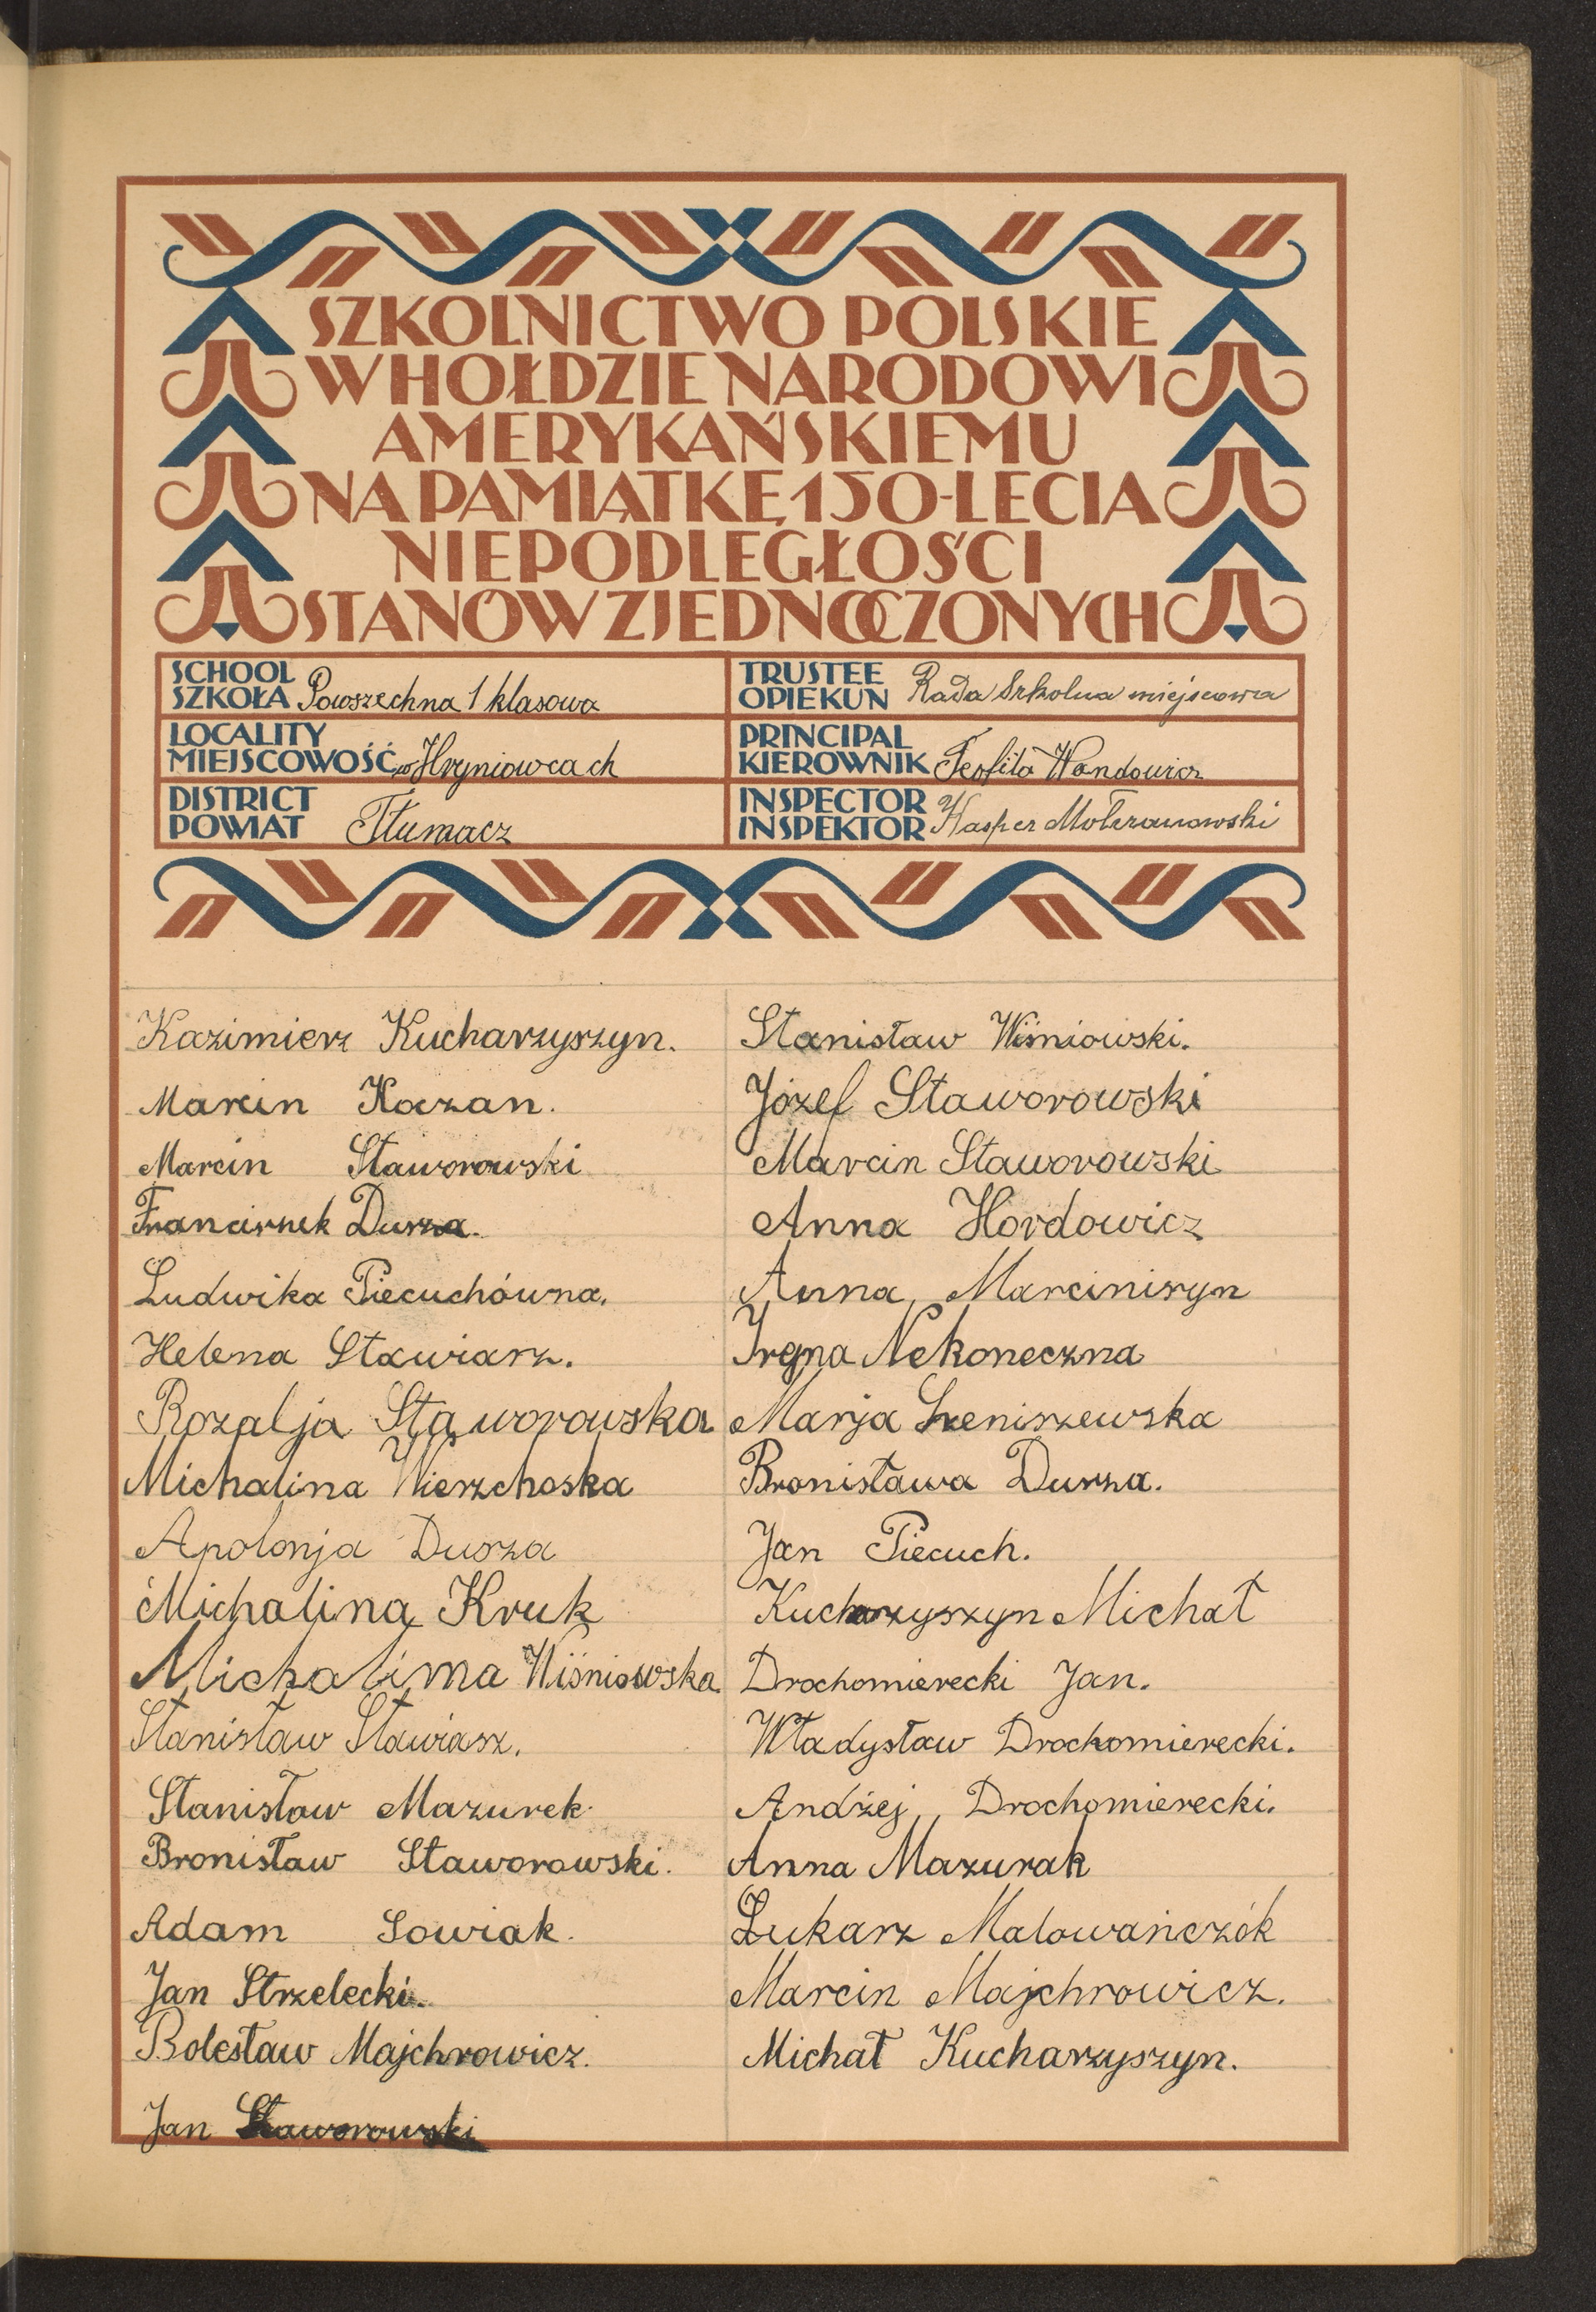 SZKOLNICTWO POLSKIE
W HOŁDZIE NARODOWI
AMERYKAŃSKIEMU
NA PAMIĄTKĘ 150-LECIA
NIEPODLEGŁOŚCI
STANÓW ZJEDNOCZONYCH
SCHOOL
SZKOŁA Powszechna 1 klasowa
TRUSTEE
OPIEKUN Rada Szkolna miejscowa
LOCALITY
MIEJSCOWOŚĆ w Hryniowcach
PRINCIPAL
KIEROWNIK Teofila Wandowicz
DISTRICT
POWIAT Tłumacz
INSPECTOR
INSPEKTOR Kasper
Kazimierz Kucharzyszyn.
Marcin Koczan.
Marcin Staworowski
Franciszek Dusza.
Ludwika Piecuchówna.
Helena Stawiarz.
Rozalja Staworowska
Michalina Wierzchoska
Apolonja Dusza
Michalina Kruk
Michalima Wiśniowska
Stanisław Stawiasz.
Stanisław Mazurek
Bronisław Staworowski.
Adam Sowiak.
Jan Strzelecki.
Bolesław Majchrowicz.
Jan Staworowski
Stanisław Wiśniowski.
Józef Staworowski
Marcin Staworowski
Anna Hordowicz
Anna Marciniszyn
Iryna Nekoneczna
Marja
Bronisława Dusza.
Jan Piecuch.
Kucharzyszyn Michał
Drochomierecki Jan.
Władysław Drochomierecki.
Andżej Drochomierecki.
Anna Mazurak
Łukarz Malowańczók
Marcin Majchrowicz.
Michał Kucharzyszyn.